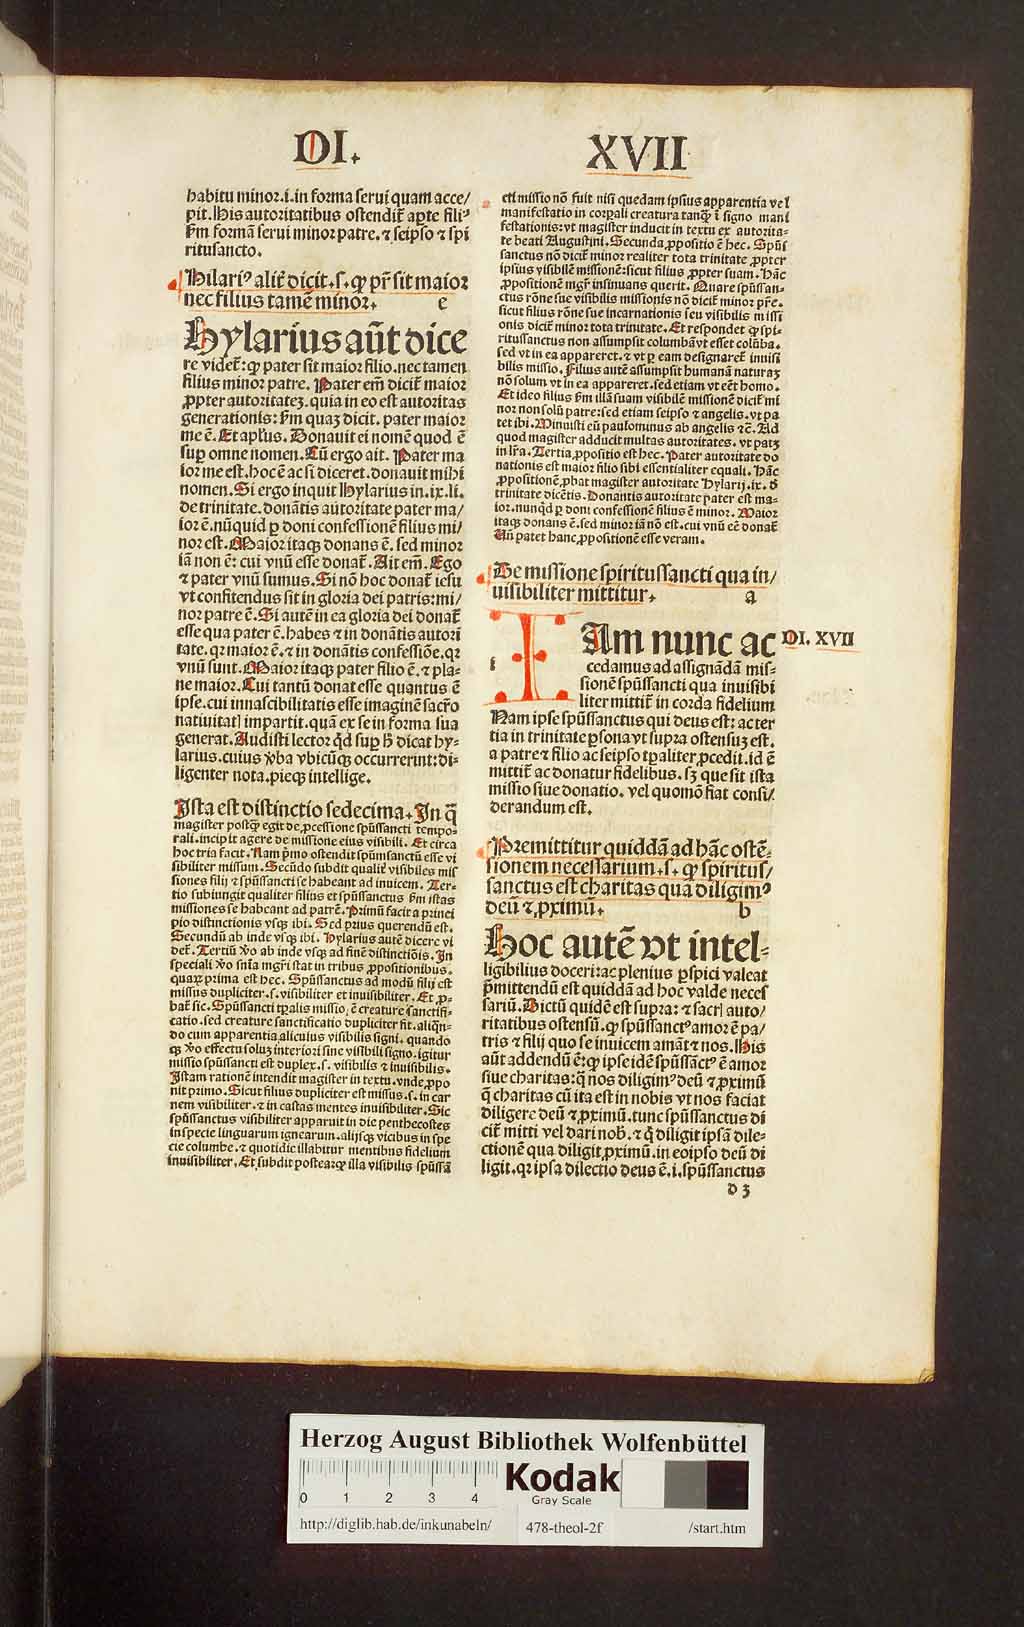 DI. XVII
habitu minor.i.in forma serui quam acce/
pit. His autoritatibus ostendit̃ aꝑte filiꝰ
ẜm formã serui minor patre. ⁊ seipso ⁊ spi
ritusancto.
Hilariꝰ alit̃ dicit.s. ꝙ pr̃ sit maior
nec filius tamẽ minor. e
Hylarius aũt dice
re videt̃: ꝙ pater sit maior filio.nec tamen
filius minor patre. Pater em̃ dicit̃ maior
ꝓpter autoritatez. quia in eo est autoritas
generationis: ẜm quaz dicit. pater maior
me ẽ. Et apl̃us. Donauit ei nomẽ quod ẽ
suꝑ omne nomen. Cũ ergo ait. Pater ma
ior me est.hoc ẽ ac si diceret. donauit mihi
nomen. Si ergo inquit Hylarius in.ix.li.
de trinitate. donãtis autoritate pater ma/
ior ẽ. nũquid ꝑ doni confessionẽ filius mi/
nor est. Maior itaqꝫ donans ẽ. sed minor
iã non ẽ: cui vnũ esse donat̃. Ait em̃. Ego
⁊ pater vnũ sumus. Si nõ hoc donat̃ iesu
vt confitendus sit in gloria dei patris: mi/
nor patre ẽ. Si autẽ in ea gloria dei donat̃
esse qua pater ẽ. habes ⁊ in donãtis autori
tate. qꝛ maior ẽ. ⁊ in donãtis confessiõe. qꝛ
vnũ sunt. Maior itaqꝫ pater filio ẽ. ⁊ pla-
ne maior. Cui tantũ donat esse quantus ẽ
ipse. cui innascibilitatis esse imaginẽ sacr̃o
natiuitatꝭ impartit. quã ex se in forma sua
generat. Audisti lector qͥd suꝑ ħ dicat hy-
larius. cuius ꝟba vbicũqꝫ occurrerint: di-
ligenter nota. pieqꝫ intellige.
Ista est distinctio sedecima. In q̃
magister postqͣꝫ egit de ꝓcessione spũssancti tempo-
rali. incipit agere de missione eius visibili. Et circa
hoc tria facit. Nam p̃mo ostendit spũmsanctũ esse vi
sibiliter missum. Secũdo subdit qualit̃ visibiles mis
siones filij ⁊ spũssancti se habeant ad inuicem. Ter-
tio subiungit qualiter filius et spũssanctus ẜm istas
missiones se habeant ad patrẽ. Primũ facit a princi
pio distinctionis vsqꝫ ibi. Sed prius querendũ est.
Secundũ ab inde vsqꝫ ibi. Hylarius autẽ dicere vi
det̃. Tertiũ ꝟo ab inde vsqꝫ ad finẽ distinctiõis. In
speciali ꝟo sñia mgr̃i stat in tribus ꝓpositionibus.
quaꝝ prima est hec. Spũssanctus ad modũ filij est
missus dupliciter.s. visibiliter et inuisibiliter. Et ꝓ-
bat̃ sic. Spũssancti tꝑalis missio, ẽ creature sanctifi-
catio. sed creature sanctificatio dupliciter fit. aliqñ-
do cum apparentia alicuius visibilis signi. quando
qꝫ ꝟo effectu soluz interiori sine visibili signo. igitur
missio spũssancti est duplex.s. visibilis ⁊ inuisibilis.
Istam rationẽ intendit magister in textu. vnde ꝓpo
nit primo. Sicut filius dupliciter est missus.s. in car
nem visibiliter. ⁊ in castas mentes inuisibiliter. Sic
spũssanctus visibiliter apparuit in die penthecostes
in specie linguarum ignearum. alijsqꝫ vicibus in spe
cie columbe. ⁊ quotidie illabitur mentibus fidelium
inuisibiliter. Et subdit postea ꝙ illa visibilis spũssã
cti missio nõ fuit nisi quedam ipsius apparentia vel
manifestatio in corꝑali creatura tanqͣꝫ ĩ signo mani
festationis: vt magister inducit in textu ex autorita-
te beati Augustini. Secunda ꝓpositio ẽ hec. Spũs
sanctus nõ dicit̃ minor realiter tota trinitate ꝓpter
ipsius visibilẽ missionẽ: sicut filius ꝓpter suam. Hãc
ꝓpositionẽ mgr̃ insinuans querit. Quare spũssan-
ctus rõne sue visibilis missionis nõ dicit̃ minor pr̃e.
sicut filius rõne sue incarnationis seu visibilis missi
onis dicit̃ minor tota trinitate. Et respondet ꝙ spi-
ritussanctus non assumpsit columbã vt esset colũba.
sed vt in ea appareret. ⁊ vt ꝑ eam designaret̃ inuisi
bilis missio. Filius autẽ assumpsit humanã naturaz
nõ solum vt in ea appareret. sed etiam vt eẽt homo.
Et ideo filius ẜm illã suam visibilẽ missionẽ dicit̃ mi
nor non solũ patre: sed etiam seipso ⁊ angelis. vt pa
tet ibi. Minuisti eũ paulominus ab angelis ⁊c̃. Ad
quod magister adducit multas autoritates. vt patꝫ
in lr̃a. Tertia ꝓpositio est hec. Pater autoritate do
nationis est maior filio sibi essentialiter equali. Hãc
ꝓpositionẽ ꝓbat magister autoritate Hylarij.ix. ð
trinitate dicẽtis. Donantis autoritate pater est ma-
ior. nunqͥd ꝑ doni confessionẽ filius ẽ minor. Maior
itaqꝫ donans ẽ. sed minor iã nõ est. cui vnũ eẽ donat̃
Uñ patet hanc ꝓpositionẽ esse veram.
De missione spiritussancti qua in/
uisibiliter mittitur. a
i
IAm nunc ac DI. XVII
cedamus ad assignãdã mis-
sionẽ spũssancti qua inuisibi
liter mittit̃ in corda fidelium
Nam ipse spũssanctus qui deus est: ac ter
tia in trinitate ꝑsona vt supra ostensuz est.
a patre ⁊ filio ac seipso tꝑaliter ꝓcedit. id ẽ
mittit̃ ac donatur fidelibus. sꝫ que sit ista
missio siue donatio. vel quomõ fiat consi/
derandum est.
Premittitur quiddã ad hãc ostẽ-
sionem necessarium.s. ꝙ spiritus/
sanctus est charitas qua diligimꝰ
deũ ⁊ ꝓximũ. b
Hoc autẽ vt intel-
ligibilius doceri: ac plenius ꝑspici valeat
p̃mittendũ est quiddã ad hoc valde neces
sariũ. Dictũ quidẽ est supra: ⁊ sacrꝭ auto/
ritatibus ostensũ. ꝙ spũssanctꝰ amor ẽ pa/
tris ⁊ filij quo se inuicem amãt ⁊ nos. His
aũt addendũ ẽ: ꝙ ipse idẽ spũssãctꝰ ẽ amor
siue charitas: q̃ nos diligimꝰ deũ ⁊ ꝓximũ
q̃ charitas cũ ita est in nobis vt nos faciat
diligere deũ ⁊ ꝓximũ. tunc spũssanctus di
cit̃ mitti vel dari nob̃. ⁊ qͥ diligit ipsã dile-
ctionẽ qua diligit ꝓximũ. in eoipso deũ di
ligit. qꝛ ipsa dilectio deus ẽ.i. spũssanctus
d 3
Herzog August Bibliothek Wolfenbüttel
0 1 2 3 4
Kodak
Gray Scale
http://diglib.hab.de/inkunabeln/ 478-theol-2f /start.htm